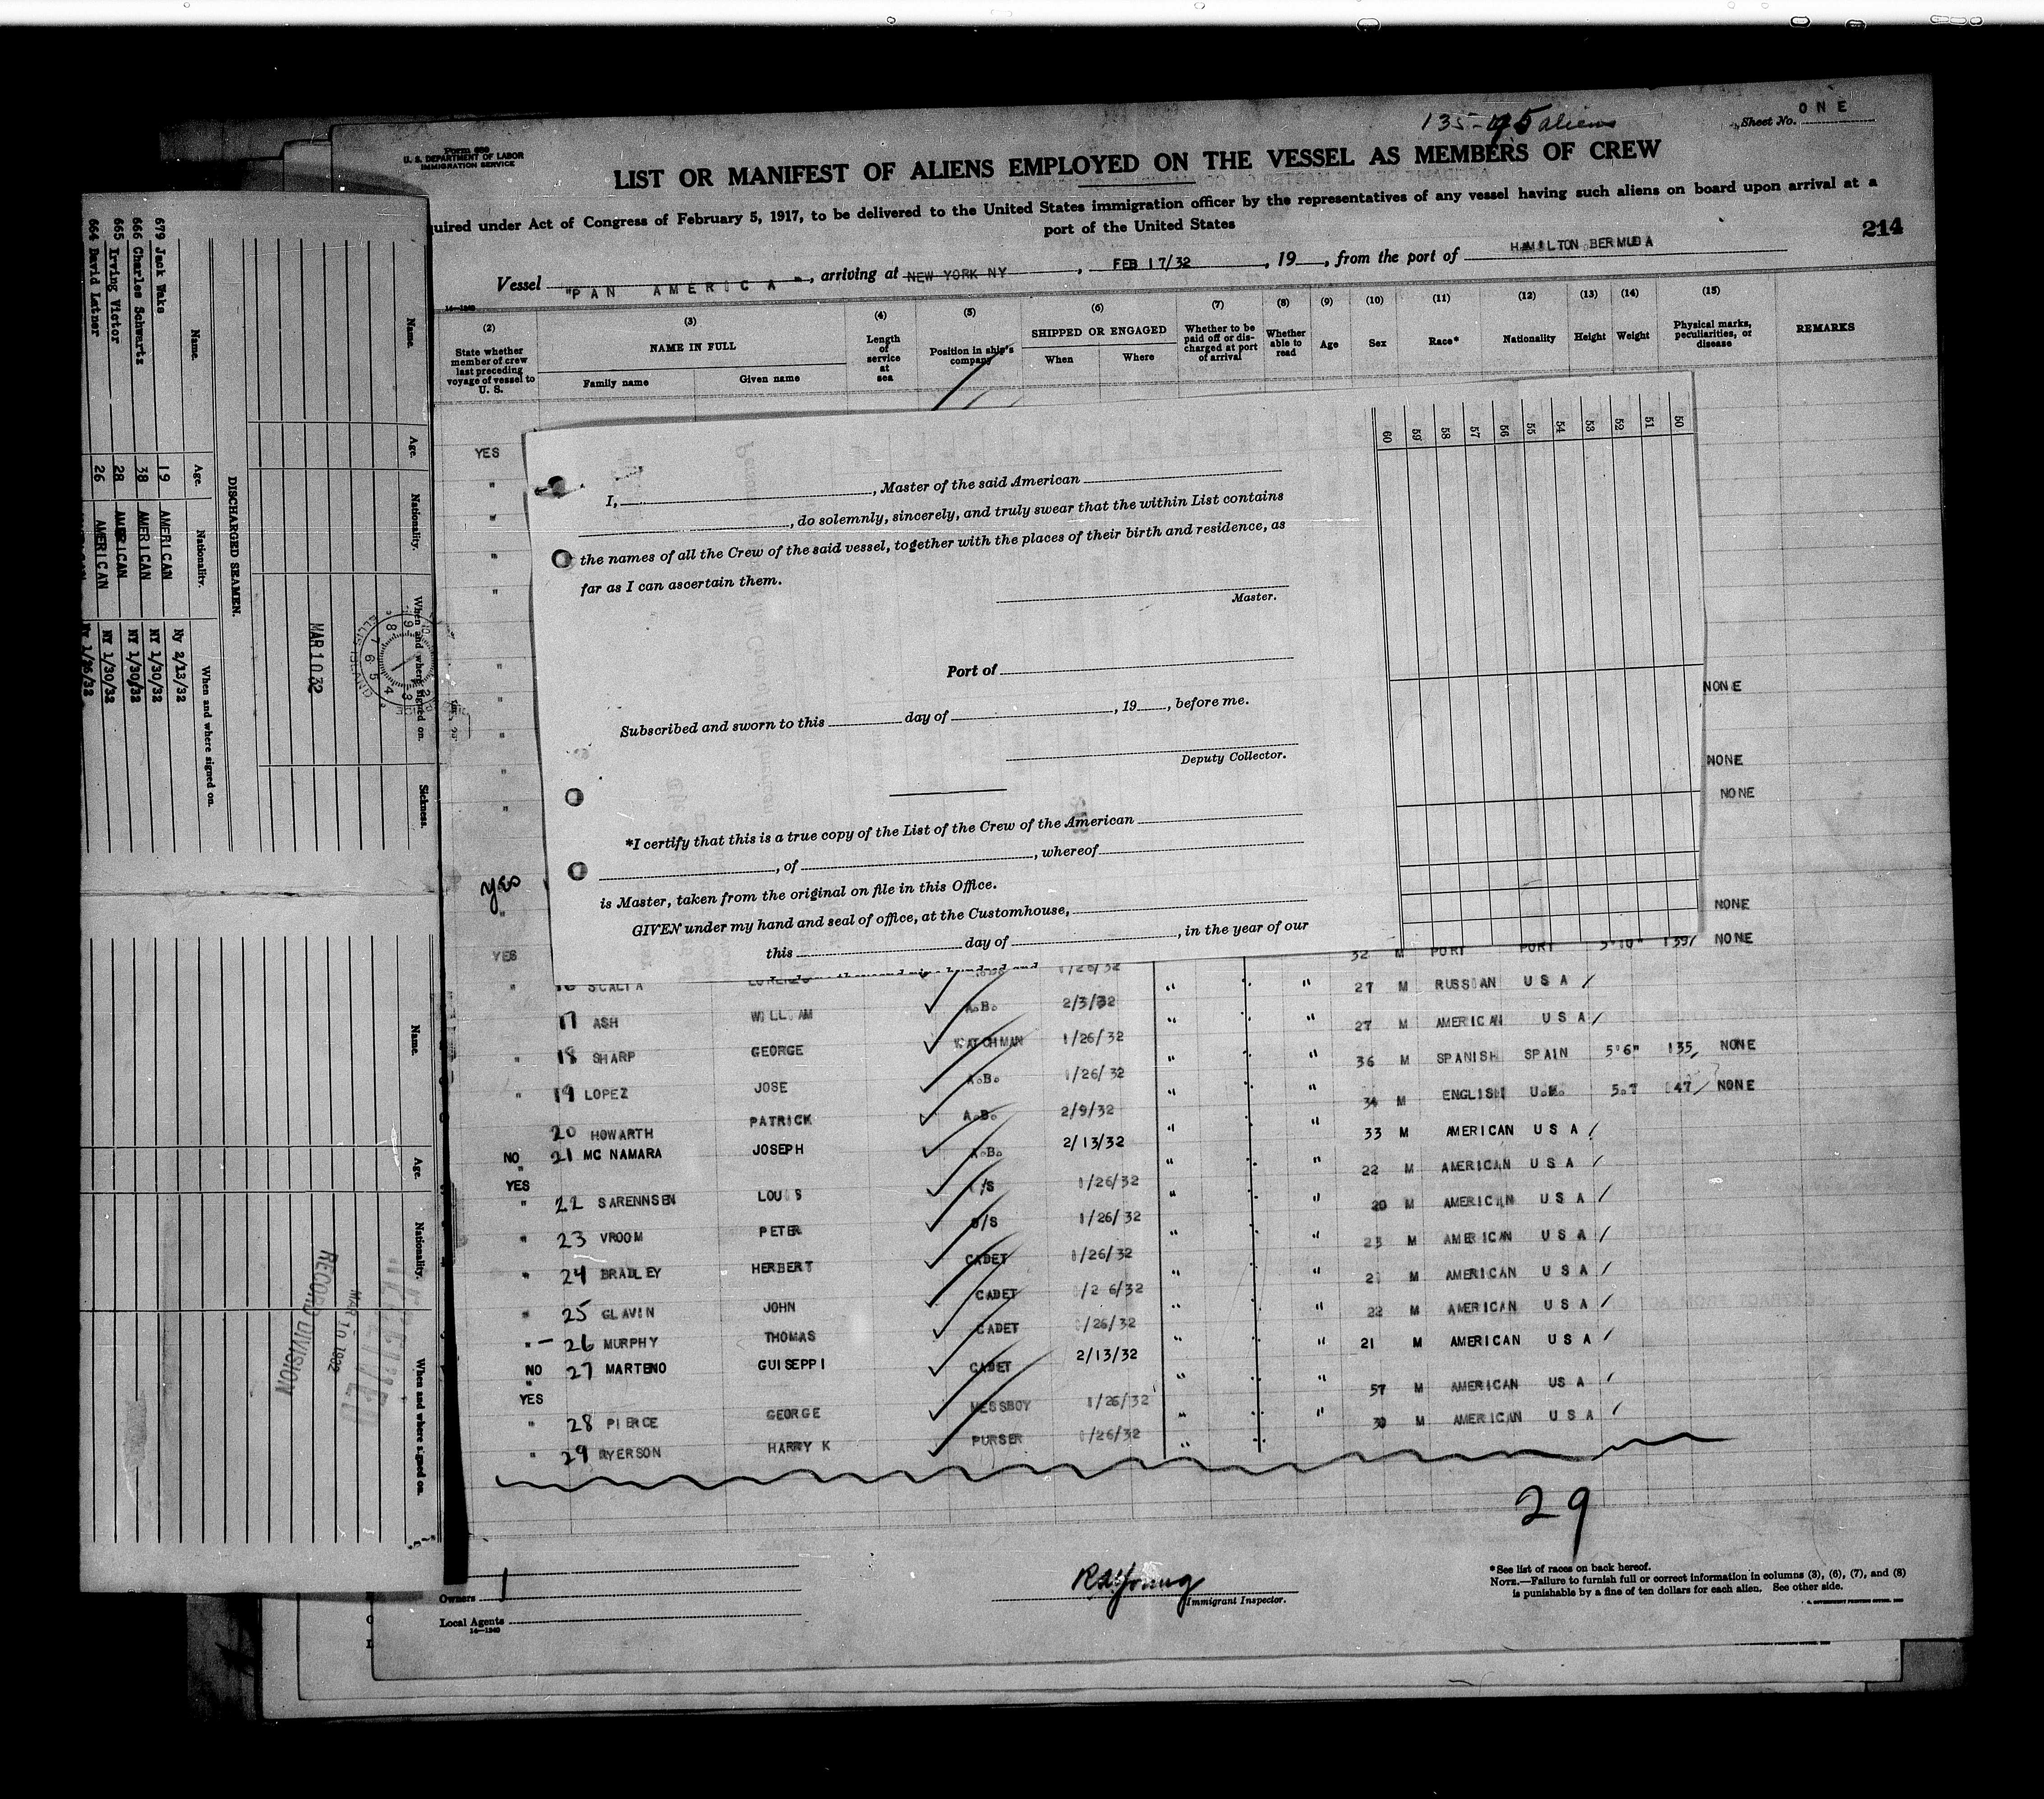 135-95 aliens
Sheet No. ONE
Form 689
U. S. DEPARTMENT OF LABOR
IMMIGRATION SERVICE
LIST OR MANIFEST OF ALIENS EMPLOYED ON THE VESSEL AS MEMBERS OF CREW
uired under Act of Congress of February 5, 1917, to be delivered to the United States immigration officer by the representatives of any vessel having such aliens on board upon arrival at a
port of the United States
214
Vessel "PAN AMERICA", arriving at NEW YORK NY, FEB 17/32, 19, from the port of HAMILTON BERMUDA
14—1240
(2) (3) (4) (5) (6) (7) (8) (9) (10) (11) (12) (13) (14) (15)
State whether member of crew last preceding voyage of vessel to U. S.
NAME IN FULL
Family name Given name
Length of service at sea
Position in ship's company
SHIPPED OR ENGAGED
When Where
Whether to be paid off or discharged at port of arrival
Whether able to read
Age Sex Race* Nationality Height Weight
Physical marks, peculiarities, or disease
REMARKS
YES
50 51 52 53 54 55 56 57 58 59 60
I, , Master of the said American
, do solemnly, sincerely, and truly swear that the within List contains
the names of all the Crew of the said vessel, together with the places of their birth and residence, as
far as I can ascertain them.
Master.
Port of
Subscribed and sworn to this day of , 19 , before me.
Deputy Collector.
*I certify that this is a true copy of the List of the Crew of the American
, of , whereof
is Master, taken from the original on file in this Office.
GIVEN under my hand and seal of office, at the Customhouse,
this day of , in the year of our
NONE
NONE
NONE
yes
NONE
YES 32 M PORT PORT 5'10" 139/ NONE
" SCALTA 1/26/32 " " 27 M RUSSIAN U S A /
17 ASH WILLIAM A.B. 2/3/32 " " 27 M AMERICAN U S A /
" 18 SHARP GEORGE WATCHMAN 1/26/32 " " 36 M SPANISH SPAIN 5'6" 135/ NONE
" 19 LOPEZ JOSE A.B. 1/26/32 " " 34 M ENGLISH U.K. 5.7 147/ NONE
20 HOWARTH PATRICK A.B. 2/9/32 " " 33 M AMERICAN U S A /
NO 21 MC NAMARA JOSEPH A.B. 2/13/32 " " 22 M AMERICAN U S A /
YES
" 22 SARENNSEN LOUIS O/S 1/26/32 " " 20 M AMERICAN U S A /
" 23 VROOM PETER O/S 1/26/32 " " 23 M AMERICAN U S A /
" 24 BRADLEY HERBERT CADET 1/26/32 " " 21 M AMERICAN U S A /
" 25 GLAVIN JOHN CADET 1/26/32 " " 22 M AMERICAN U S A /
" - 26 MURPHY THOMAS CADET 1/26/32 " " 21 M AMERICAN U S A /
NO 27 MARTENO GUISEPPI CADET 2/13/32 " " 57 M AMERICAN US A /
YES
" 28 PIERCE GEORGE MESSBOY 1/26/32 " " 39 M AMERICAN U S A /
" 29 RYERSON HARRY K PURSER 1/26/32 "
29
Owners
Local Agents
14—1240
R.W. Young
Immigrant Inspector.
*See list of races on back hereof.
NOTE.—Failure to furnish full or correct information in columns (3), (6), (7), and (8)
is punishable by a fine of ten dollars for each alien. See other side.
Name. Age. Nationality. When and where signed on. Sickness.
MAR 10 32
ELLIS ISLAND
DISCHARGED SEAMEN.
Name. Age. Nationality. When and where signed on.
679 Jack Waks 19 AMERICAN Ny 2/13/32
666 Charles Schwartz 38 AMERICAN NY 1/30/32
665 Irving Victor 28 AMERICAN NY 1/30/32
664 David Latner 26 AMERICAN NY 1/30/32
NY 1/26/32
Name. Age. Nationality. When and where signed on.
RECEIVED
MAR 10 1932
RECORD DIVISION